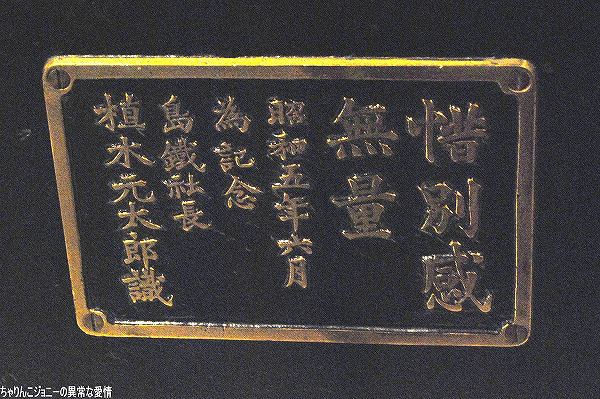 惜別感
無量
昭和五年六月
為記念
島鐵社長
植木元太郎識
ちゃりんこジョニーの異常な愛情